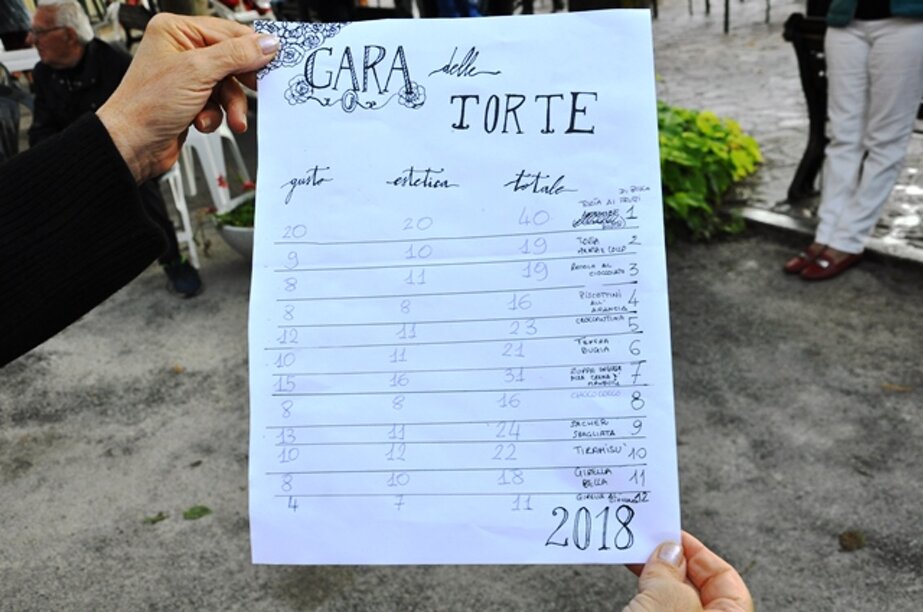 GARA delle
TORTE
gusto estetica totale
20 20 40 TORTA AI FRUTTI DI BOSCO 1
9 10 19 TORTA 2
8 11 19 AL CIOCCOLATO 3
8 8 16 BISCOTTINI ALL' ARANCIA 4
12 11 23 5
10 11 21 TENERA BUGIA 6
15 16 31 ZUPPA 7
8 8 16 CHOCO COCCO 8
13 11 24 SACHER SBAGLIATA 9
10 12 22 TIRAMISU' 10
8 10 18 GIRELLA BELLA 11
4 7 11 12
2018